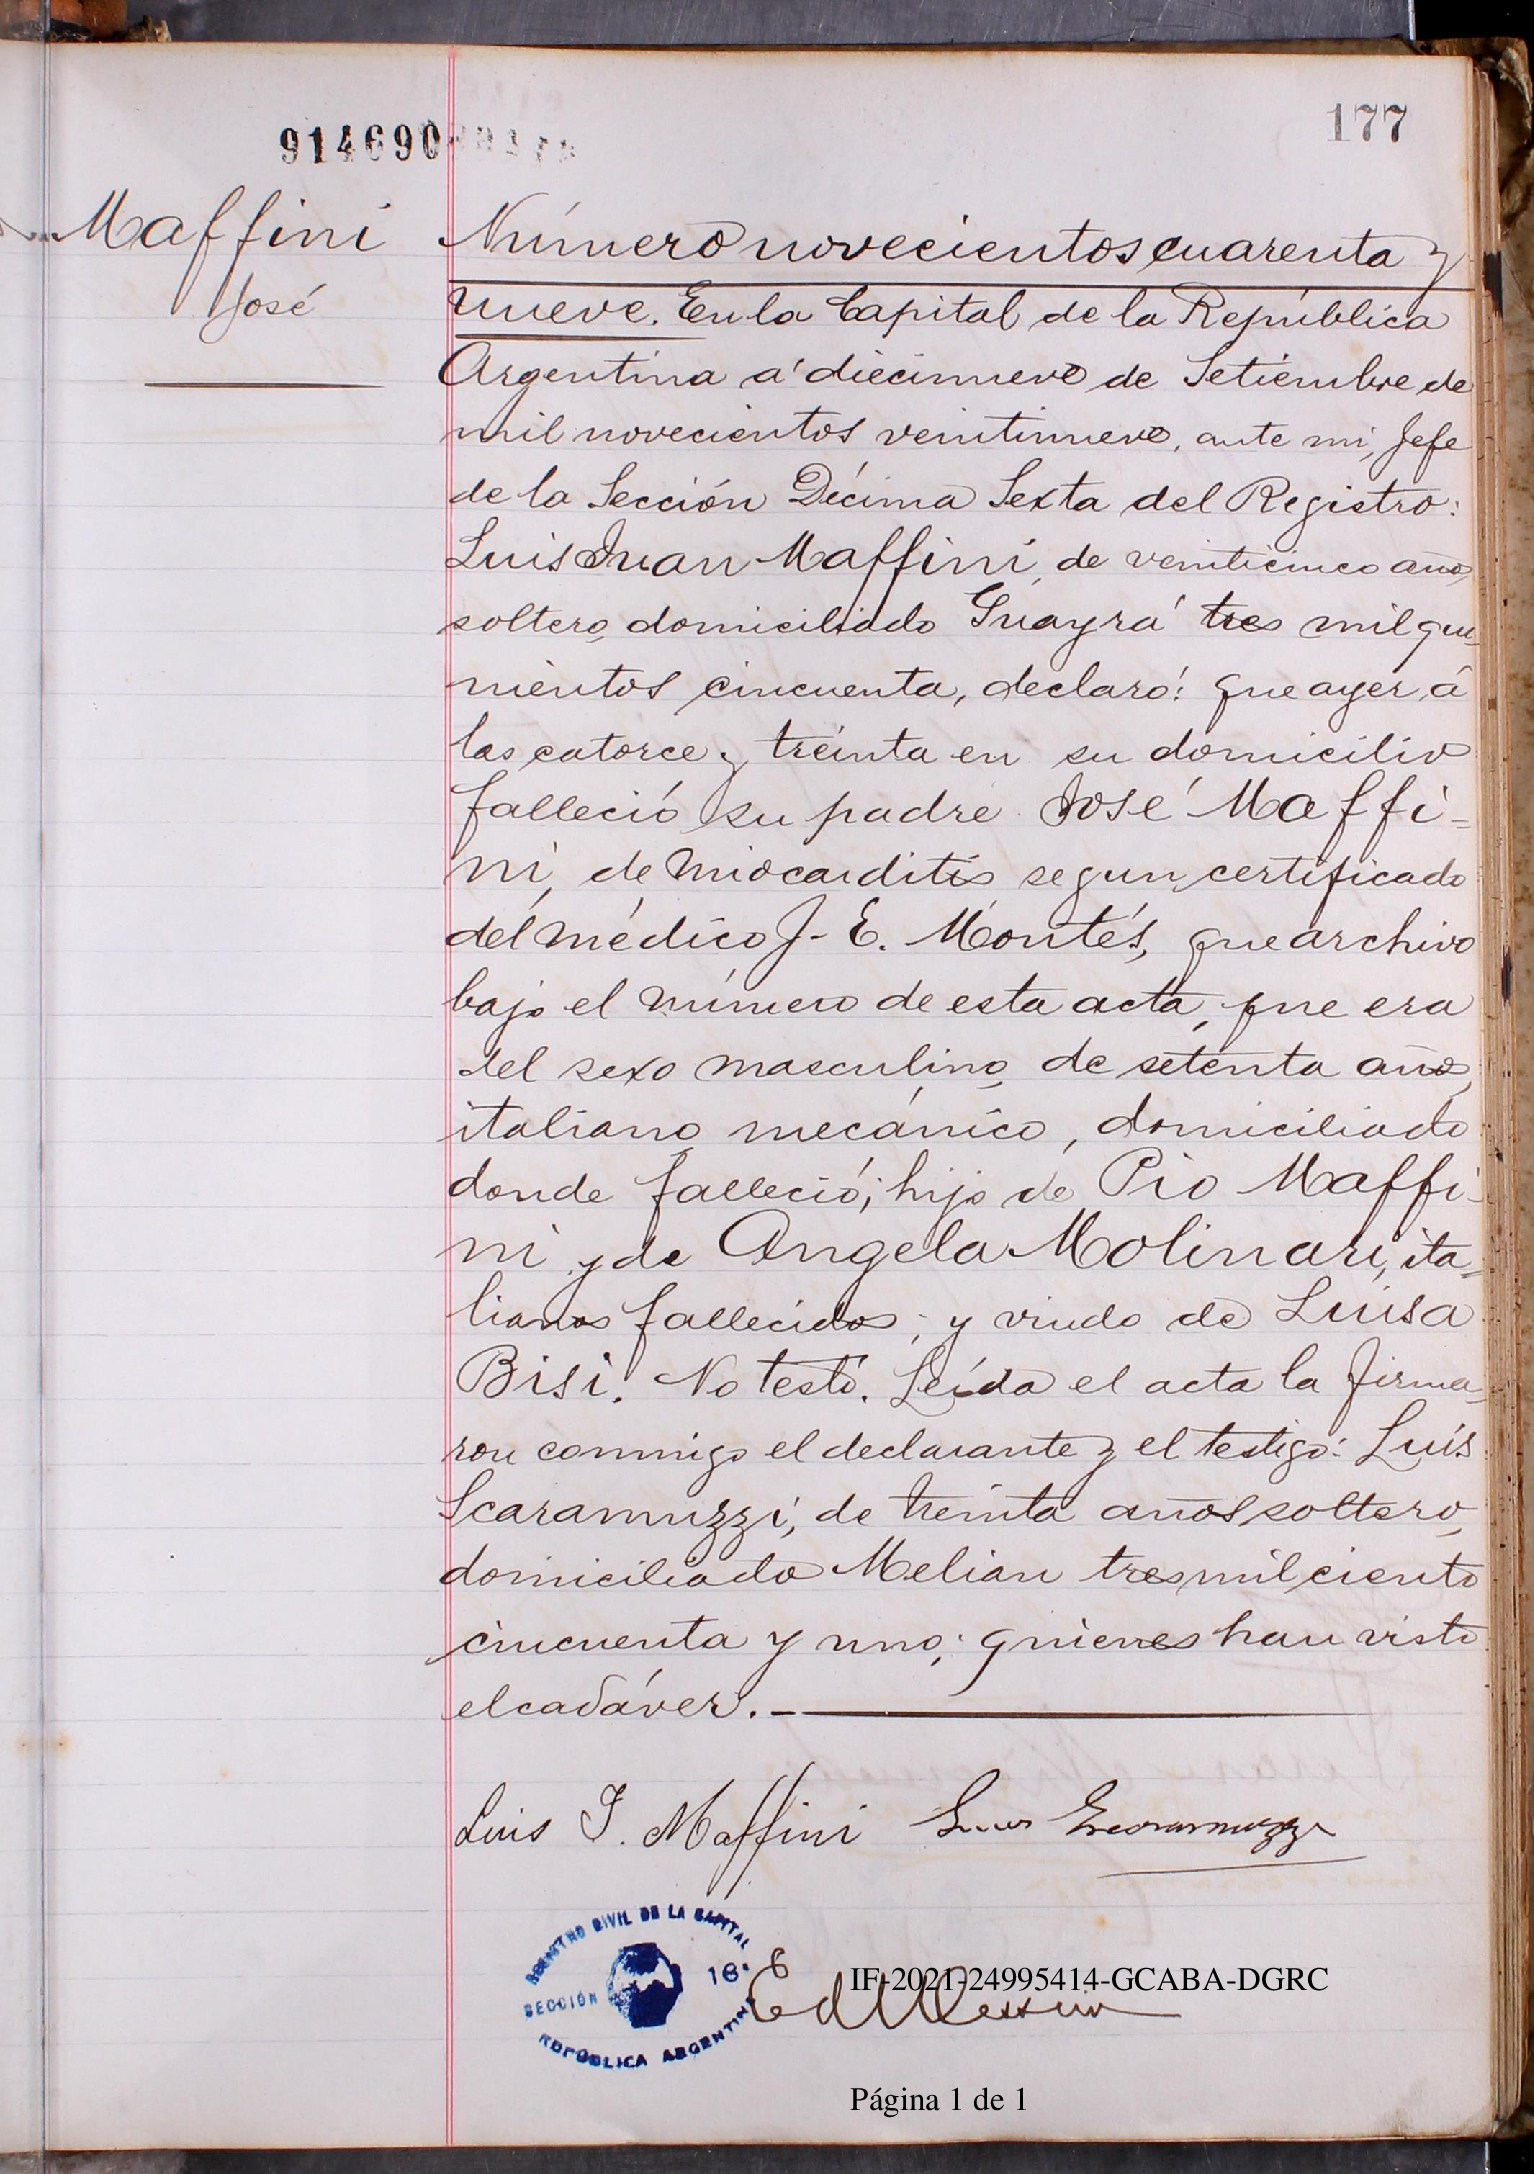 177
914690
Maffini
José
Número novecientos cuarenta y
nueve. En la Capital de la República
Argentina á diecinueve de Setiembre de
mil novecientos veintinueve, ante mi, Jefe
de la Sección Décima Sexta del Registro:
Luis Juan Maffini, de veinticinco años,
soltero, domiciliado Guayrá tres mil qui-
nientos cincuenta, declaró: que ayer á
las catorce y treinta en su domicilio
falleció su padre José Maffi-
ni, de miocarditis segun certificado
del médico J. E. Montés, que archivo
bajo el número de esta acta, que era
del sexo masculino, de setenta años,
italiano, mecánico, domiciliado
donde falleció; hijo de Pio Maffi-
ni y de Angela Molinari, ita-
lianos fallecidos; y viudo de Luisa
Bisi. No testó. Leída el acta la firma-
ron conmigo el declarante y el testigo: Luis
Scaramuzzi, de treinta años, soltero,
domiciliado Melian tres mil ciento
cincuenta y uno; quienes han visto
el cadáver.
Luis J. Maffini Luis Scaramuzzi
REGISTRO CIVIL DE LA CAPITAL
SECCIÓN 16.
REPÚBLICA ARGENTINA
IF-2021-24995414-GCABA-DGRC
Página 1 de 1